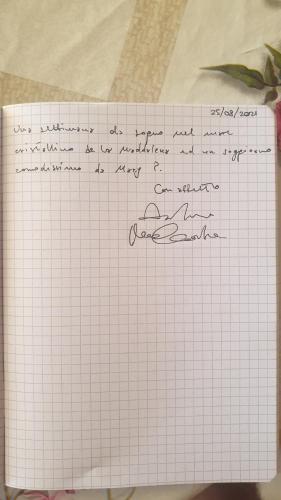 25/08/2021
Una settimana da sogno nel mare
cristallino de La Maddalena ed un soggiorno
comodissimo da Mary
Con affetto